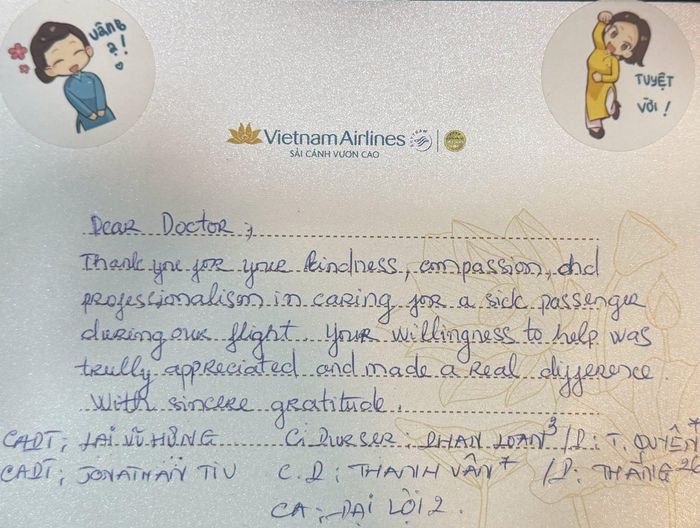 vâng ạ!
TUYỆT VỜI!
Vietnam Airlines SKYTEAM
SẢI CÁNH VƯƠN CAO
Dear Doctor,
Thank you for your kindness, compassion, and
professionalism in caring for a sick passenger
during our flight. Your willingness to help was
trully appreciated and made a real difference.
With sincere gratitude.
CAPT: LẠI VŨ HÙNG C. : PHAN LOAN 3 /P: T. QUYÊN 7
CAPT: JONATHAN TIU C.P: THANH VÂN 7 /P: THẮNG
CA: ĐẠI LỢI 2.